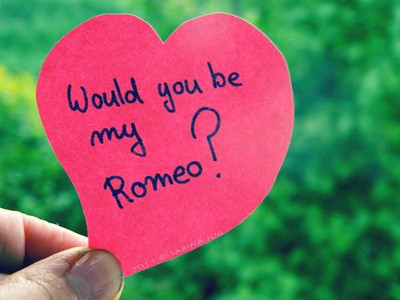 Would you be
my ?
Romeo
2011 © SABINA JOG